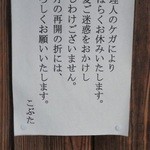 理人のケガにより
ばらくお休みいたします。
変ご迷惑をおかけし
しわけございません。
の再開の折には、
ろしくお願いいたします。
こぶた